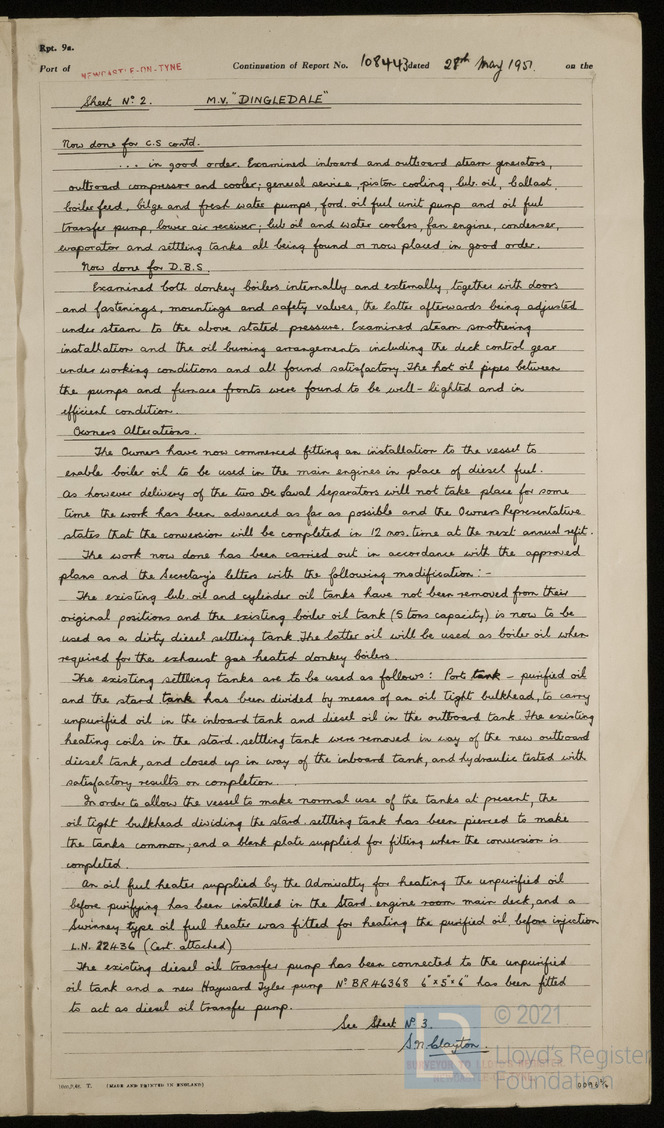 Rpt. 9a.
Port of NEWCASTLE-ON-TYNE Continuation of Report No. 108443 dated 28th May 1951. on the
Sheet No. 2. M.V. "DINGLEDALE"
Now done for C.S contd.
... in good order. Examined inboard and outboard steam generators,
outboard compressor and cooler; general service, piston cooling, lub. oil, ballast,
boiler feed, bilge and fresh water pumps, ford. oil fuel unit pump and oil fuel
transfer pump, lower air receiver; lub oil and water coolers, fan engine, condenser,
evaporator and settling tanks all being found or now placed in good order.
Now done for D.B.S.
Examined both donkey boilers internally and externally, together with doors
and fastenings, mountings and safety valves, the latter afterwards being adjusted
under steam to the above stated pressure. Examined steam smothering
installation and the oil burning arrangements including the deck control gear
under working conditions and all found satisfactory. The hot oil pipes between
the pumps and furnace fronts were found to be well-lighted and in
efficient condition.
Owners Alterations.
The Owners have now commenced fitting an installation to the vessel to
enable boiler oil to be used in the main engines in place of diesel fuel.
As however delivery of the two De Laval Separators will not take place for some
time the work has been advanced as far as possible and the Owners Representative
states that the conversion will be completed in 12 mos. time at the next annual refit.
The work now done has been carried out in accordance with the approved
plans and the Secretary's letters with the following modification:-
The existing lub. oil and cylinder oil tanks have not been removed from their
original positions and the existing boiler oil tank (5 tons capacity) is now to be
used as a dirty diesel settling tank. The latter oil will be used as boiler oil when
required for the exhaust gas heated donkey boilers
The existing settling tanks are to be used as follows: Port tank - purified oil
and the stard tank has been divided by means of an oil tight bulkhead, to carry
unpurified oil in the inboard tank and diesel oil in the outboard tank. The existing
heating coils in the stard. settling tank were removed in way of the new outboard
diesel tank, and closed up in way of the inboard tank, and hydraulic tested with
satisfactory results on completion.
In order to allow the vessel to make normal use of the tanks at present, the
oil tight bulkhead dividing the stard. settling tank has been pierced to make
the tanks common; and a blank plate supplied for fitting when the conversion is
completed.
An oil fuel heater supplied by the Admiralty for heating the unpurified oil
before purifying has been installed in the Stard. engine room main deck, and a
Swinney type oil fuel heater was fitted for heating the purified oil before injection
L.N. 22436 (Cert. attached)
The existing diesel oil transfer pump has been connected to the unpurified
oil tank and a new Hayward Tyler pump No BR46368 6"x5"x6" has been fitted
to act as diesel oil transfer pump.
See Sheet No 3.
S.N. Clayton.
SURVEYOR TO LLOYD'S REGISTER
NEWCASTLE-ON-TYNE
LR © 2021
Lloyd's Register
Foundation
(MADE AND PRINTED IN ENGLAND)